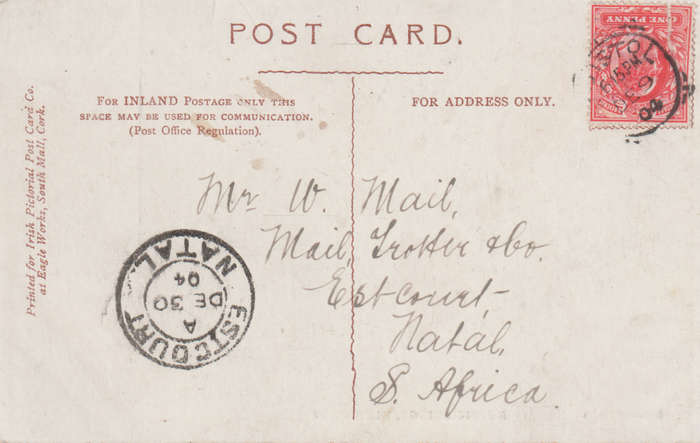 POST CARD.
FOR INLAND POSTAGE ONLY THIS
SPACE MAY BE USED FOR COMMUNICATION.
(Post Office Regulation).
FOR ADDRESS ONLY.
Printed for Irish Pictorial Post Card Co.
at Eagle Works, South Mall, Cork.
ONE PENNY
04
Mr W. Mail,
Mail, Trotter & Co.
Estcourt
Natal,
S. Africa.
ESTCOURT
A
DE 30
04
NATAL